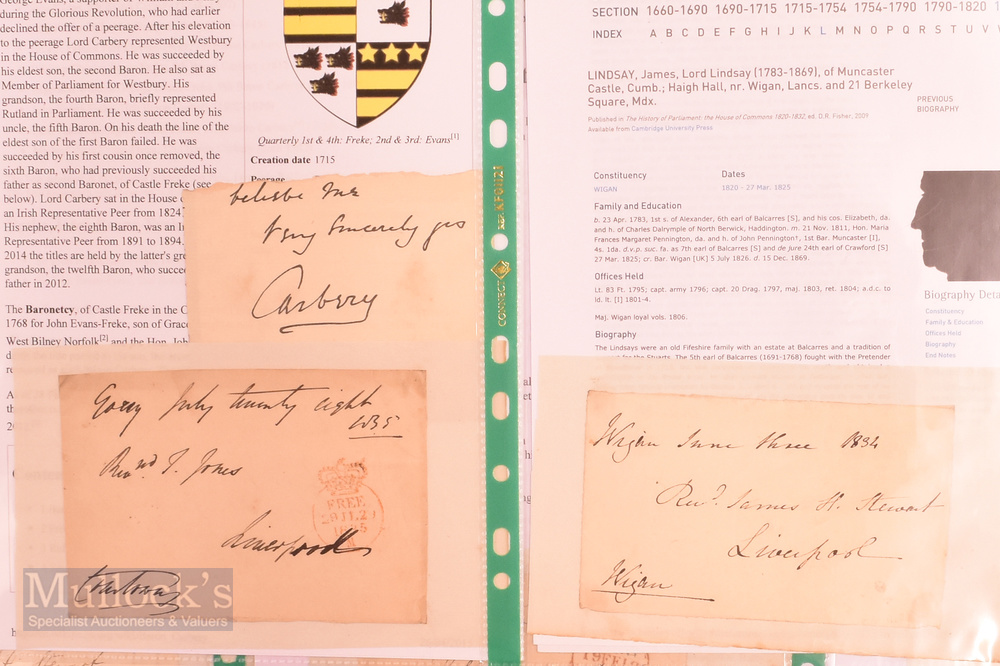 during the Glorious Revolution, who had earlier
declined the offer of a peerage. After his elevation
to the peerage Lord Carbery represented Westbury
in the House of Commons. He was succeeded by
his eldest son, the second Baron. He also sat as
Member of Parliament for Westbury. His
grandson, the fourth Baron, briefly represented
Rutland in Parliament. He was succeeded by his
uncle, the fifth Baron. On his death the line of the
eldest son of the first Baron failed. He was
succeeded by his first cousin once removed, the
sixth Baron, who had previously succeeded his
father as second Baronet, of Castle Freke (see
below). Lord Carbery sat in the House
an Irish Representative Peer from 1824
His nephew, the eighth Baron, was an
Representative Peer from 1891 to 1894.
2014 the titles are held by the latter's
grandson, the twelfth Baron, who
father in 2012.
The Baronetcy, of Castle Freke in the C
1768 for John Evans-Freke, son of Grace
West Bilney Norfolk[2] and the Hon.
Quarterly 1st & 4th: Freke; 2nd & 3rd: Evans[1]
Creation date 1715
Peerage
believe me
Very Sincerely yrs
Carbery
Gorey July twenty eight
1835
Revnd. T. Jones
Liverpool
FREE
29 JY 29
1835
Mullock's
Specialist Auctioneers & Valuers
REF. AFG1121
CONNECT
SECTION 1660-1690 1690-1715 1715-1754 1754-1790 1790-1820
INDEX A B C D E F G H I J K L M N O P Q R S T U V
LINDSAY, James, Lord Lindsay (1783-1869), of Muncaster
Castle, Cumb.; Haigh Hall, nr. Wigan, Lancs. and 21 Berkeley
Square, Mdx.
PREVIOUS
BIOGRAPHY
Published in The History of Parliament: the House of Commons 1820-1832, ed. D.R. Fisher, 2009
Available from Cambridge University Press
Constituency Dates
WIGAN 1820 - 27 Mar. 1825
Family and Education
b. 23 Apr. 1783, 1st s. of Alexander, 6th earl of Balcarres [S], and his cos. Elizabeth, da.
and h. of Charles Dalrymple of North Berwick, Haddington. m. 21 Nov. 1811, Hon. Maria
Frances Margaret Pennington, da. and h. of John Pennington†, 1st Bar. Muncaster [I],
4s. 1da. d.v.p. suc. fa. as 7th earl of Balcarres [S] and de jure 24th earl of Crawford [S]
27 Mar. 1825; cr. Bar. Wigan [UK] 5 July 1826. d. 15 Dec. 1869.
Offices Held
Lt. 83 Ft. 1795; capt. army 1796; capt. 20 Drag. 1797, maj. 1803, ret. 1804; a.d.c. to
ld. lt. [I] 1801-4.
Maj. Wigan loyal vols. 1806.
Biography
The Lindsays were an old Fifeshire family with an estate at Balcarres and a tradition of
for the Stuarts. The 5th earl of Balcarres (1691-1768) fought with the Pretender
Biography Deta
Constituency
Family & Education
Offices Held
Biography
End Notes
Wigan June three 1834
Revd. James H. Stewart
Liverpool
Wigan